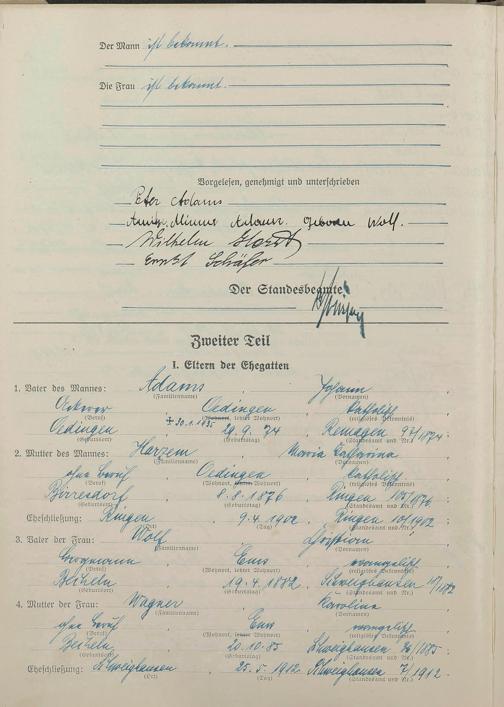 Der Mann ist bekannt.
Die Frau ist bekannt.
Vorgelesen, genehmigt und unterschrieben
Peter Adams
Minna Adams geborene Wolf.
Wilhelm
Ernst Schäfer
Der Standesbeamte
Zweiter Teil
I. Eltern der Ehegatten
1. Vater des Mannes: Adams Johann
(Familienname) (Vornamen)
Ackerer Oedingen katholisch
(Beruf) (Wohnort, letzter Wohnort) (religiöses Bekenntnis)
Oedingen 29.9.74 Remagen 97/1874
(Geburtsort) (Geburtstag) (Standesamt und Nr.)
2. Mutter des Mannes: Harzem Maria Katharina
(Familienname) (Vornamen)
ohne Beruf Oedingen katholisch
(Beruf) (Wohnort, letzter Wohnort) (religiöses Bekenntnis)
Birresdorf 8.8.1876 Ringen
(Geburtsort) (Geburtstag) (Standesamt und Nr.)
Eheschließung: Ringen 9.4.1902 Ringen 10/1902
(Ort) (Tag) (Standesamt und Nr.)
3. Vater der Frau: Wolf Christian
(Familienname) (Vornamen)
Bergmann Ems evangelisch
(Beruf) (Wohnort, letzter Wohnort) (religiöses Bekenntnis)
19.4.1882 Schweighausen
(Geburtsort) (Geburtstag) (Standesamt und Nr.)
4. Mutter der Frau: Wagner Karolina
(Familienname) (Vornamen)
ohne Beruf Ems evangelisch
(Beruf) (Wohnort, letzter Wohnort) (religiöses Bekenntnis)
20.10.85 Schweighausen
(Geburtsort) (Geburtstag) (Standesamt und Nr.)
Eheschließung: Schweighausen 25.5.1912 Schweighausen 7/1912
(Ort) (Tag) (Standesamt und Nr.)